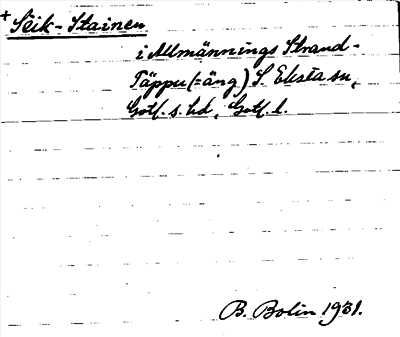 + Sëik-Stainen
i Allmännings Strand-
Täppu (= äng) S Eksta sn,
Gotl. s. hd, Gotl. l.
B. Bolin 1931.